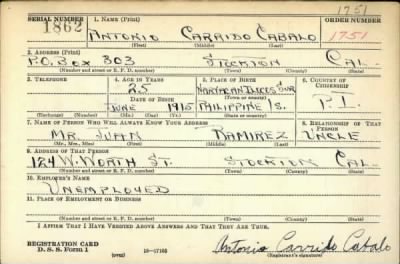 1751
SERIAL NUMBER 1. NAME (Print) ORDER NUMBER
1862 ANTONIO CARRIDO CABALO 1751
(First) (Middle) (Last)
2. ADDRESS (Print)
P.O. BOX 303 STOCKTON CAL.
(Number and street or R. F. D. number) (Town) (County) (State)
3. TELEPHONE 4. AGE IN YEARS 5. PLACE OF BIRTH 6. COUNTRY OF CITIZENSHIP
25 NARVACAN ILOCOS SUR
DATE OF BIRTH (Town or county)
JUNE 1915 PHILIPPINE IS. P.I.
(Exchange) (Number) (Mo.) (Day) (Yr.) (State or country)
7. NAME OF PERSON WHO WILL ALWAYS KNOW YOUR ADDRESS 8. RELATIONSHIP OF THAT PERSON
MR. JUAN RAMIREZ UNCLE
(Mr., Mrs., Miss) (First) (Middle) (Last)
9. ADDRESS OF THAT PERSON
124 W. WORTH ST. STOCKTON CAL.
(Number and street or R. F. D. number) (Town) (County) (State)
10. EMPLOYER'S NAME
UNEMPLOYED
11. PLACE OF EMPLOYMENT OR BUSINESS
(Number and street or R. F. D. number) (Town) (County) (State)
I AFFIRM THAT I HAVE VERIFIED ABOVE ANSWERS AND THAT THEY ARE TRUE.
REGISTRATION CARD Antonio Carrido Cabalo
D. S. S. Form 1 (over) (Registrant's signature)